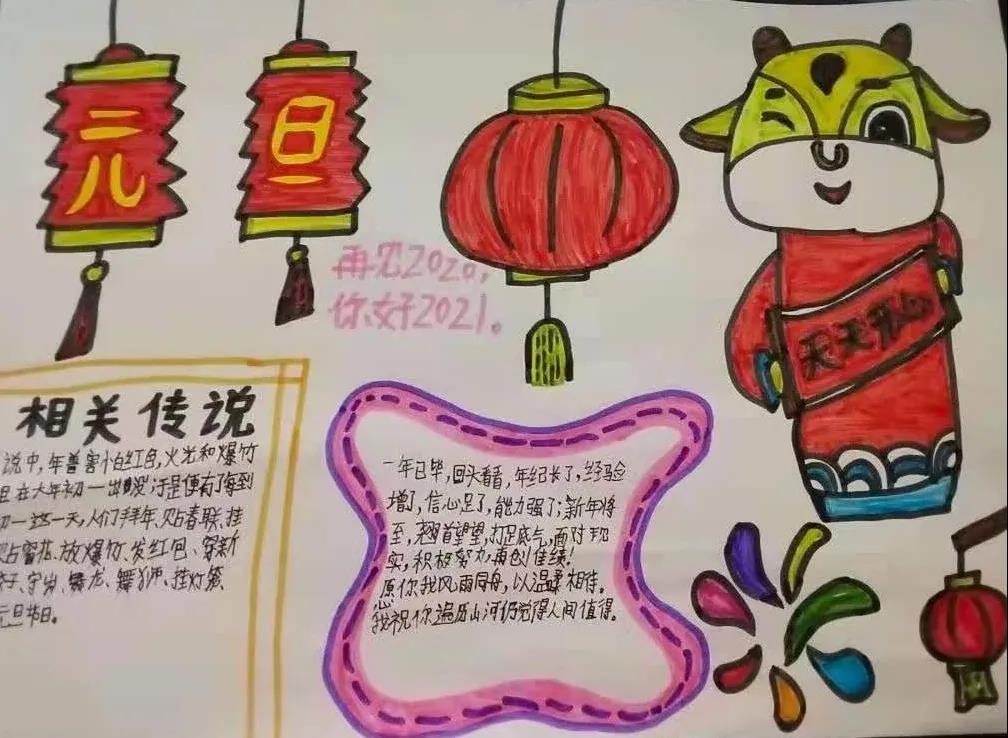 元旦
再见2020,
你好2021。
天天开心
相关传说
说中,年兽害怕红色,火光和爆竹
且在大年初一出没,于是便有了每到
初一这一天,人们拜年、贴春联、挂
贴窗花、放爆竹、发红包、穿新
守岁、舞龙、舞狮、挂灯笼
元旦节日。
一年已毕,回头看看,年纪长了,经验
增了,信心足了,能力强了;新年将
至,翘首望望,打足底气,面对现
实,积极努力,再创佳绩!
愿你我风雨同舟,以温柔相待。
我祝你遍历山河仍觉得人间值得。